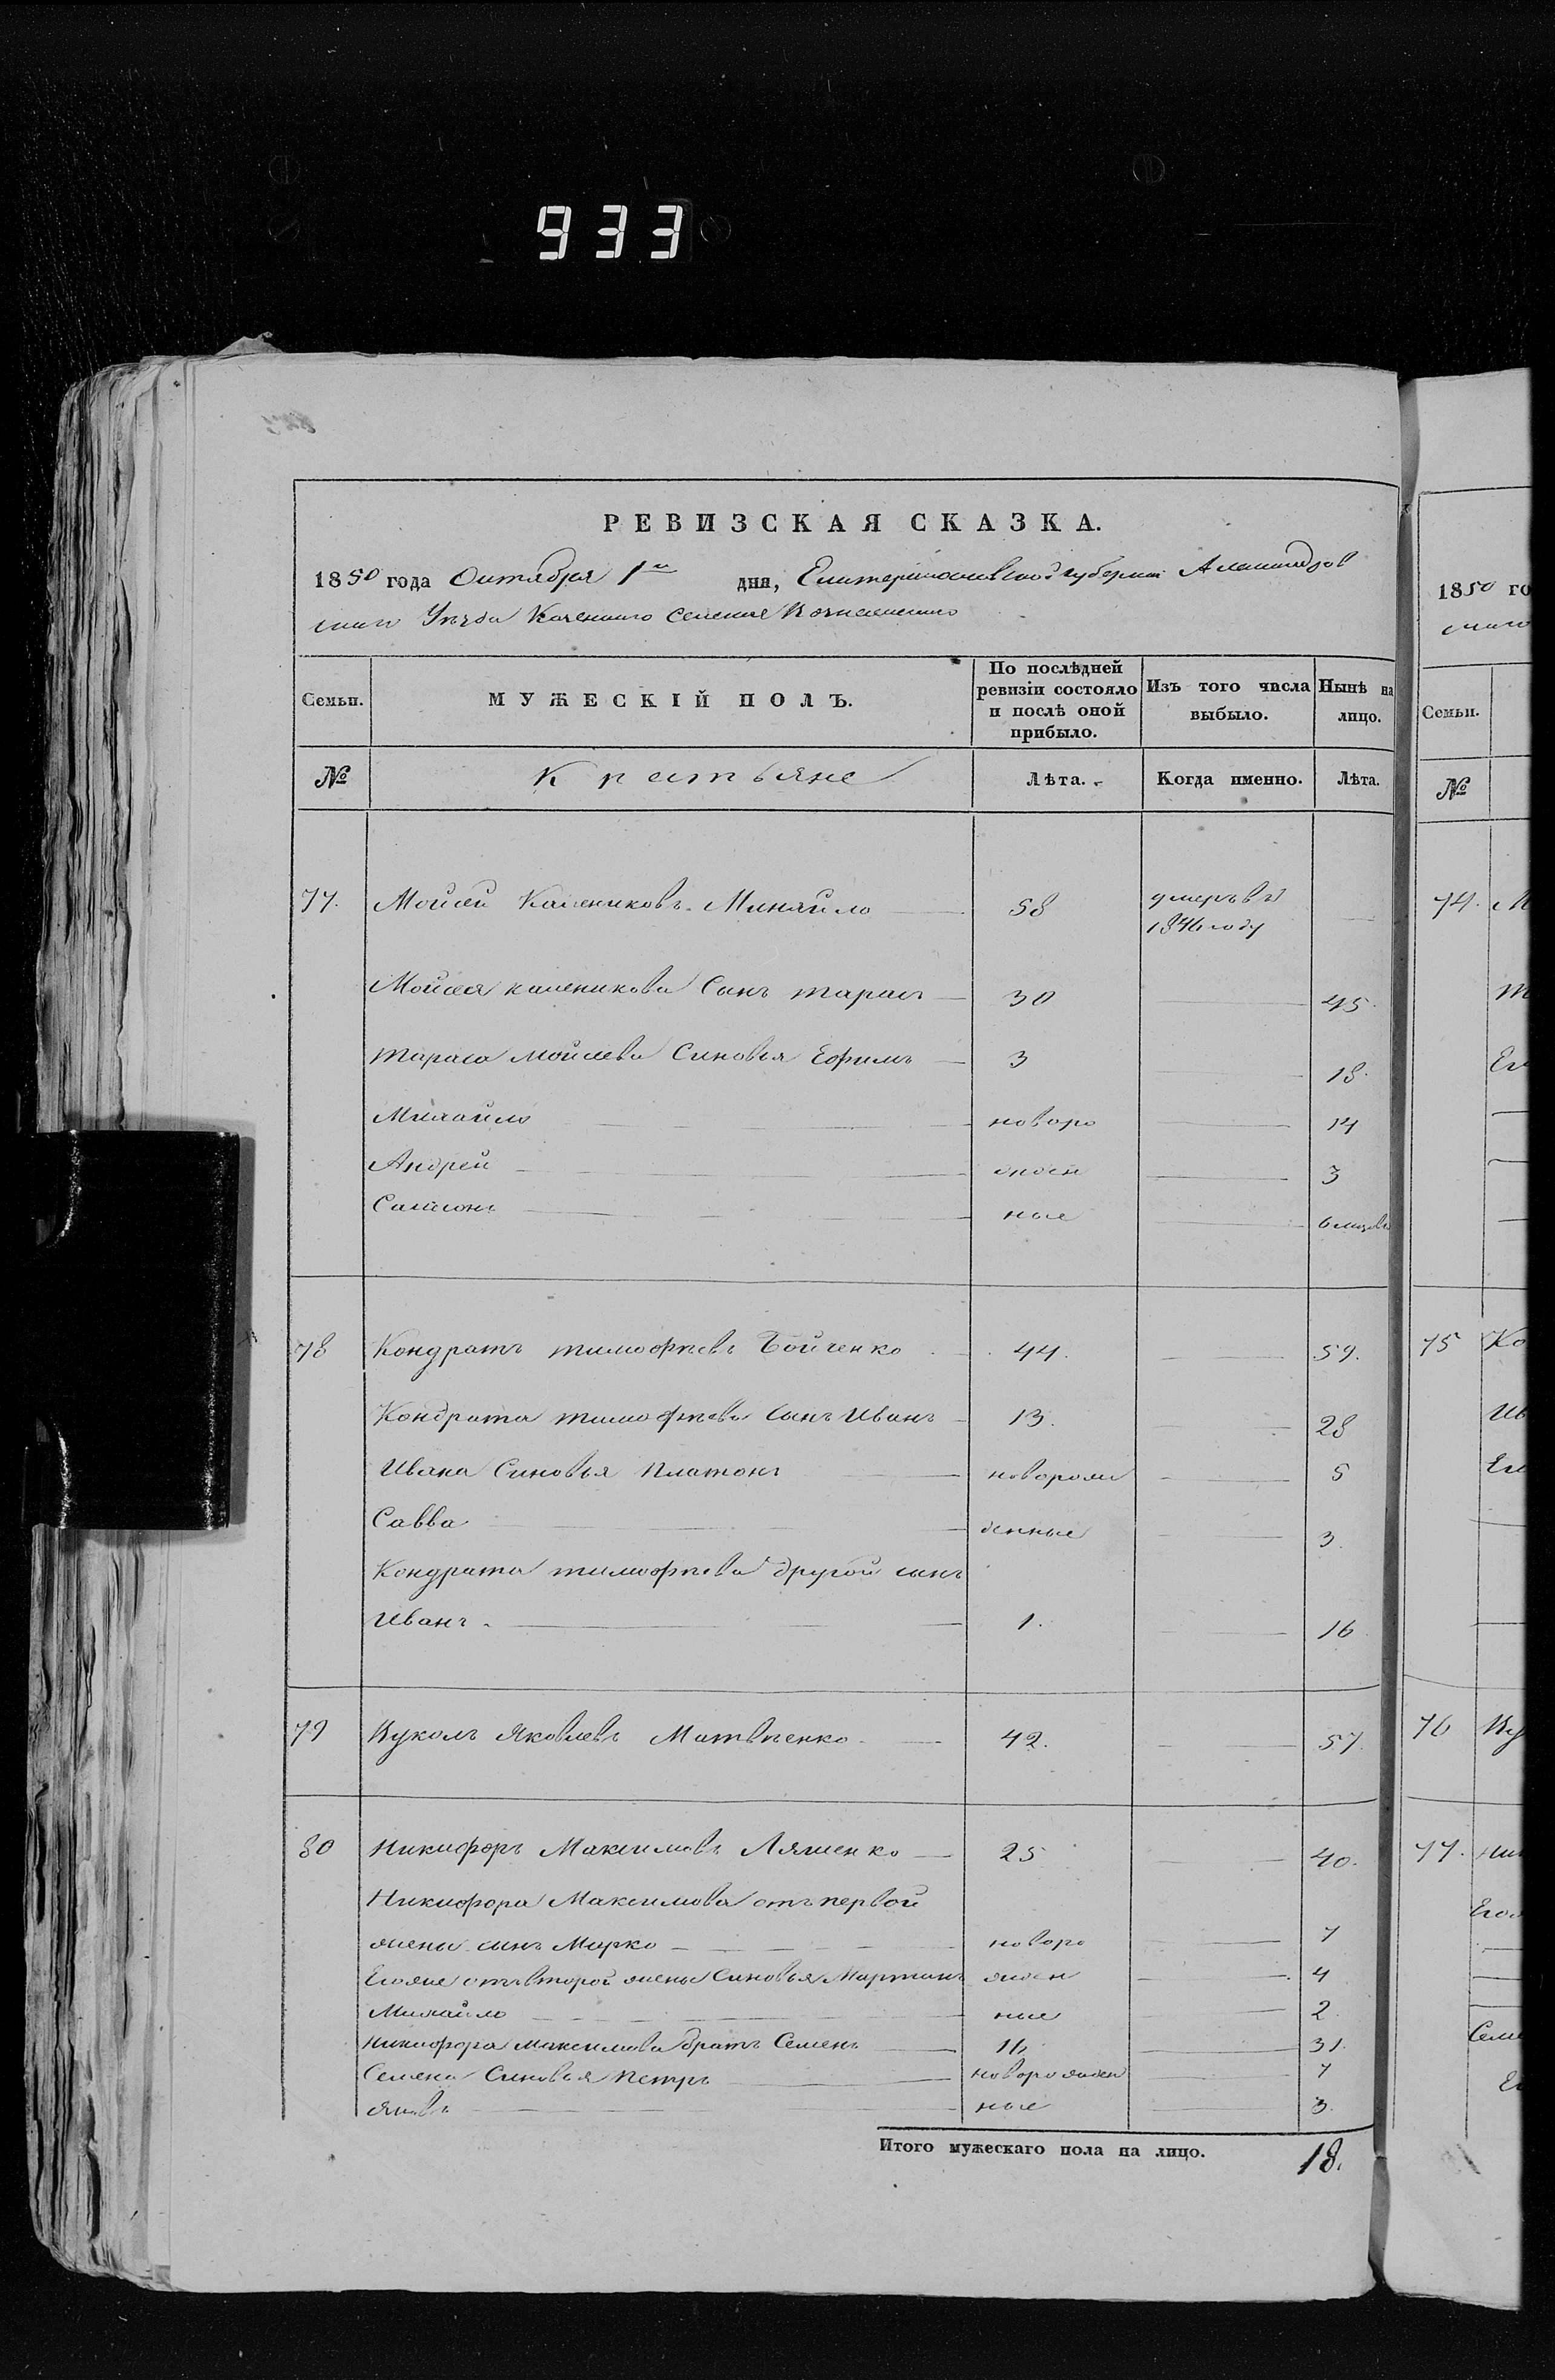 933
РЕВИЗСКАЯ СКАЗКА.
1850 года Октября 1го дня, Екатеринославской губернии Александров
скаго Уѣзда Казеннаго селения Вознесенско
Семьи. МУЖЕСКІЙ ПОЛЪ. По послѣдней ревизіи состояло и послѣ оной прибыло. Изъ того числа выбыло. Нынѣ на лицо.
№ Крестьяне Лѣта. Когда именно. Лѣта.
77. Мойсей Калениковъ 58 умеръ въ
1846 году
Мойсея каленикова Сынъ тарасъ 30 45.
тараса мойсеева Сыновья Ефимъ 3 18.
Михайло новоро 14
Андрей жден 3
Самсонъ ные 6 мѣсяцевъ
78 Кондратъ тимофѣевъ Бойченко 44. 59.
Кондрата тимофѣева сынъ Иванъ 13. 28
Ивана Сыновья Платонъ новорож 5
Савва денные 3.
Кондрата тимофѣева другой сынъ
Иванъ. 1. 16
79 Вуколъ Яковлевъ Матвѣенко 42. 57.
80 Никифоръ Максимовъ Ляшенко 25 40.
Никифора Максимова отъ первой
жены сынъ Марко новоро 7
Егоже отъ второй жены Сыновья Мартинъ жден 4
Михайло ные 2.
Никифора Максимова братъ Семенъ 16 31.
Семена Сыновья Петръ новорожден 7
Яковъ ные 3.
Итого мужескаго пола на лицо. 18.
1850 го
скаго
Семьи.
№
74. М
Т
Ег
75 Ко
Ив
Ег
76 Ву
77. Ник
Егож
Семе
Ег